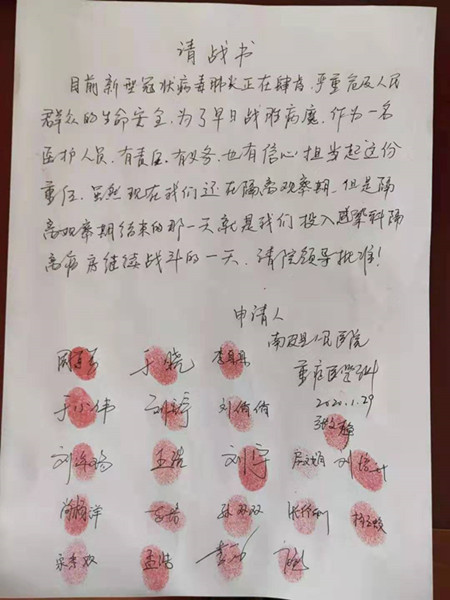 请战书
目前新型冠状病毒肺炎正在肆虐,严重危及人民
群众的生命安全,为了早日战胜病魔,作为一名
医护人员,有责任,有义务,也有信心担当起这份
重任。虽然现在我们还在隔离观察期,但是隔
离观察期结束的那一天就是我们投入感染科隔
离病房继续战斗的一天,请院领导批准!
申请人
南皮县人民医院
重症医学科
2020.1.29
于晓
于小伟 刘倩倩
王浩 刘宁
双双
孟浩